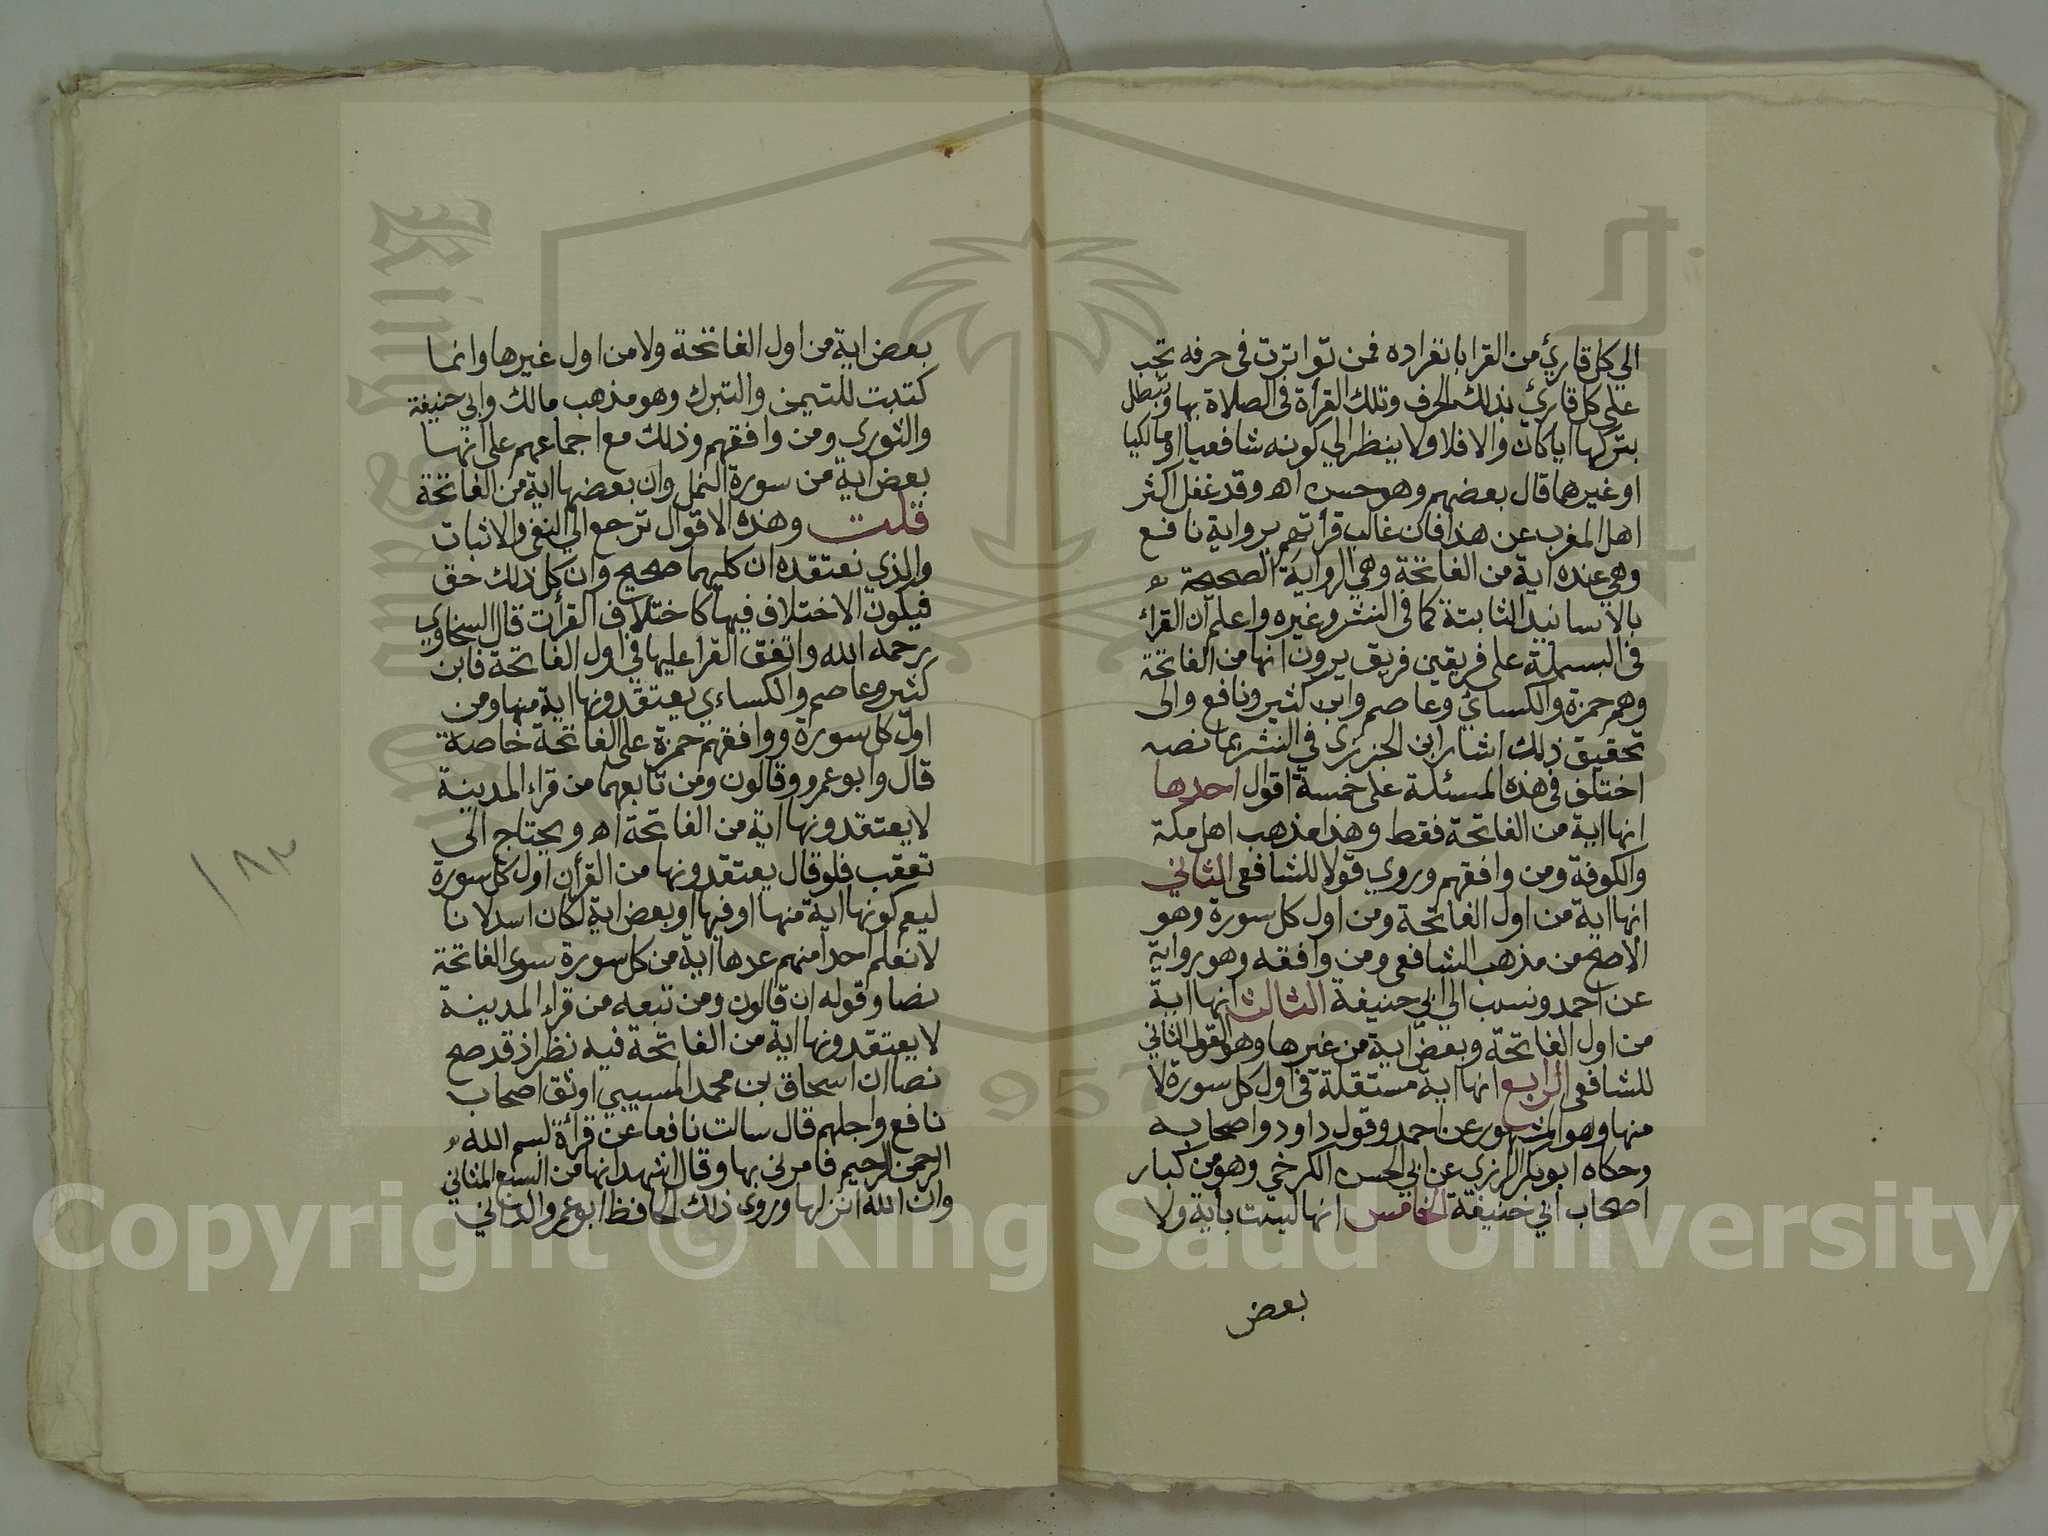 الي كل قارئ من القرا بانفراده فمن تواترت في حرفه تجب
علي كل قارئ بذلك الحرف وتلك القرأة في الصلاة بها وتبطل
بتركها ايا كان والا فلا ولا ينظر الي كونه شافعيا او مالكيا
او غيرهما قال بعضهم وهو حسن اه وقد غفل اكثر
اهل المغرب عن هذا فان غالب قرأتهم برواية نافع
وهي عنده اية من الفاتحة وهي الرواية الصحيحة
بالاسانيد الثابتة كما في النشر وغيره واعلم ان القرائ
في البسملة علي فريقين فريق يرون انها من الفاتحة
وهم حمزة والكسائي وعاصم وابن كثير ونافع والى
تحقيق ذلك اشار ابن الجزري في النشر بما نصه
اختلف في هذه المسئلة على خمسة اقوال احدها
انها اية من الفاتحة فقط وهذا مذهب اهل مكة
والكوفة ومن وافقهم وروي قولا للشافعى الثاني
انها اية من اول الفاتحة ومن اول كل سورة وهو
الاصح من مذهب الشافعى ومن وافقه وهو رواية
عن احمد ونسب الي ابي حنيفة الثالث انها اية
من اول الفاتحة وبعض اية من غيرها وهو القول الثاني
للشافعى الرابع انها اية مستقلة في اول كل سورة لا
منها وهو المشهور عن احمد وقول داود واصحابه
وحكاه ابو بكر الرزى عن ابي الحسن الكرخي وهو من كبار
اصحاب ابي حنيفة الخامس انها ليست بأية ولا
بعض
بعض اية من اول الفاتحة ولا من اول غيرها وانما
كتبت للتيمن والتبرك وهو مذهب مالك وابي حنيفة
والثوري ومن وافقهم وذلك مع اجماعهم على انها
بعض اية من سورة النمل وان بعضها اية من الفاتحة
قلت وهذه الاقوال ترجع الي النفي والاثبات
والذي نعتقده ان كليهما صحيح وان كل ذلك حق
فيكون الاختلاف فيها كاختلاف القرأت قال السخاوي
رحمه الله واتفق القرا عليها في اول الفاتحة فابن
كثير وعاصم والكساءي يعتقدونها اية منها ومن
اول كل سورة ووافقهم حمزة على الفاتحة خاصة
قال وابو عمرو وقالون ومن تابعهما من قراء المدينة
لا يعتقدونها اية من الفاتحة اه ويحتاج الى
تعقب فلو قال يعتقدونها من القرأن اول كل سورة
ليعم كونها اية منها او فيها او بعض اية لكان اسد لانا
لا نعلم احدا منهم عدها اية من كل سورة سوى الفاتحة
نصا وقوله ان قالون ومن تبعه من قراء المدينة
لا يعتقدونها اية من الفاتحة فيه نظر اذ قد صح
نصا ان اسحاق بن محمد المسيبي اوثق اصحاب
نافع واجلهم قال سالت نافعا عن قرأة بسم الله
الرحمن الرحيم فامرني بها وقال اشهد انها من السبع المثاني
وان الله انزلها وروى ذلك الحافظ ابو عمرو الداني
١٨٢
King Saud University
1957
Copyright © King Saud University